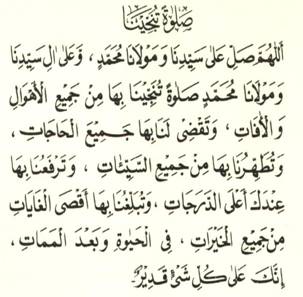 صَلٰوةُ تُنْجِيْنَا
اَللّٰهُمَّ صَلِّ عَلٰى سَيِّدِنَا وَمَوْلَانَا مُحَمَّدٍ ، وَعَلٰى اٰلِ سَيِّدِنَا
وَمَوْلَانَا مُحَمَّدٍ صَلٰوةً تُنْجِيْنَا بِهَا مِنْ جَمِيْعِ الْاَهْوَالِ
وَالْاٰفَاتِ ، وَتَقْضِىْ لَنَا بِهَا جَمِيْعَ الْحَاجَاتِ ،
وَتُطَهِّرُنَا بِهَا مِنْ جَمِيْعِ السَّيِّئٰاتِ ، وَتَرْفَعُنَا بِهَا
عِنْدَكَ اَعْلَى الدَّرَجَاتِ ، وَتُبَلِّغُنَا بِهَا اَقْصَى الْغَايَاتِ
مِنْ جَمِيْعِ الْخَيْرَاتِ ، فِى الْحَيٰوةِ وَبَعْدَ الْمَمَاتِ ،
اِنَّكَ عَلٰى كُلِّ شَىْءٍ قَدِيْرٌ